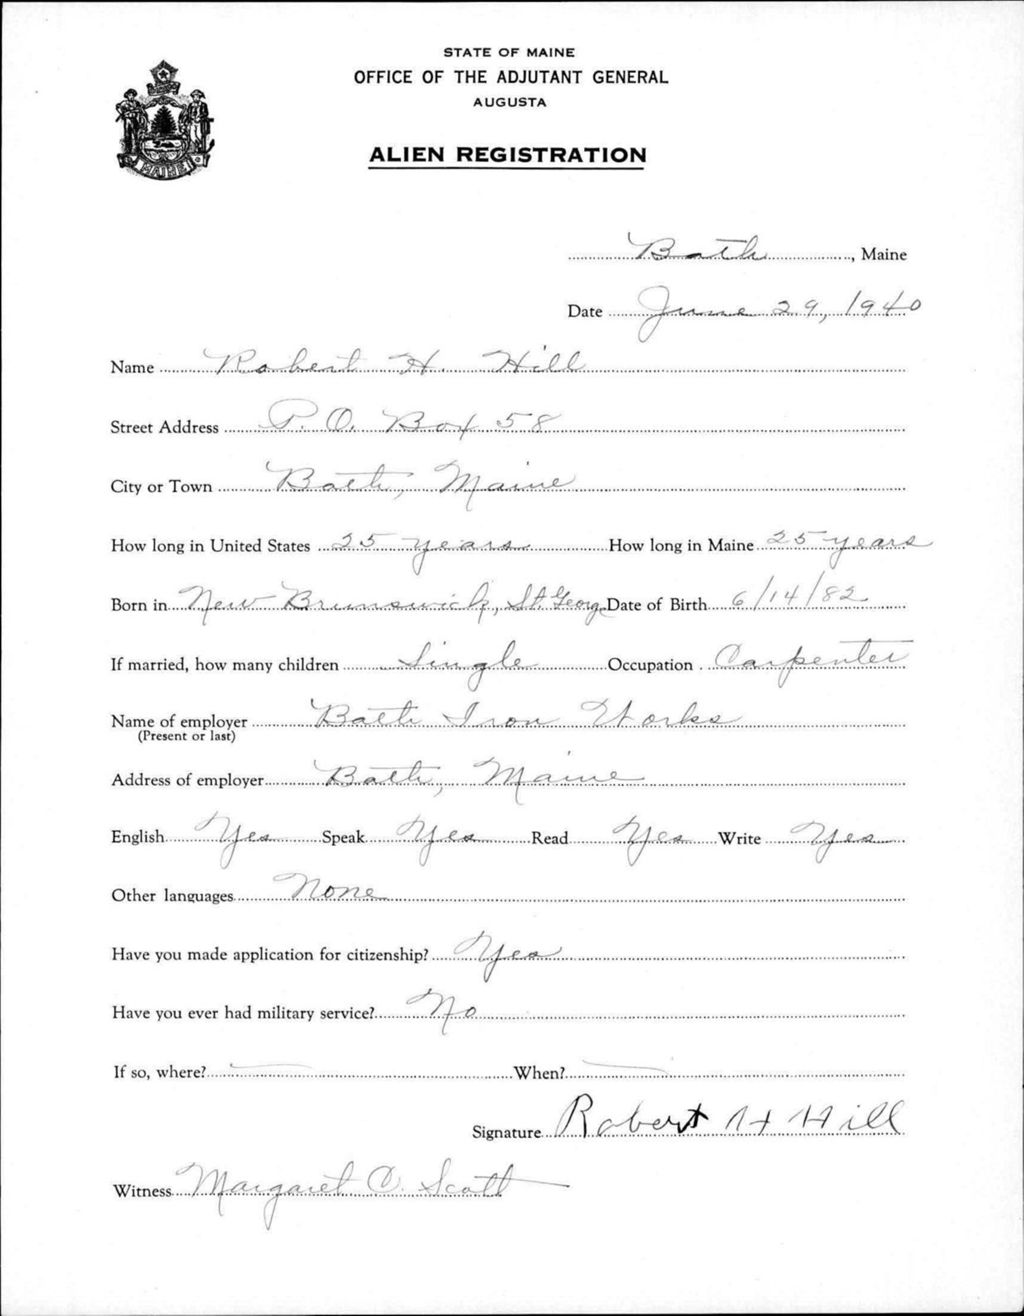 STATE OF MAINE
OFFICE OF THE ADJUTANT GENERAL
AUGUSTA
ALIEN REGISTRATION
MAINE
Bath, Maine
Date June 29, 1940
Name Robert H. Hill
Street Address P. O. Box 58
City or Town Bath, Maine
How long in United States 25 years How long in Maine 25 years
Born in New Brunswick, St. George Date of Birth 6/14/82
If married, how many children Single Occupation Carpenter
Name of employer Bath Iron Works
(Present or last)
Address of employer Bath, Maine
English Yes Speak Yes Read Yes Write Yes
Other languages None
Have you made application for citizenship? Yes
Have you ever had military service? No
If so, where? — When? —
Signature Robert H Hill
Witness Margaret C. Scott